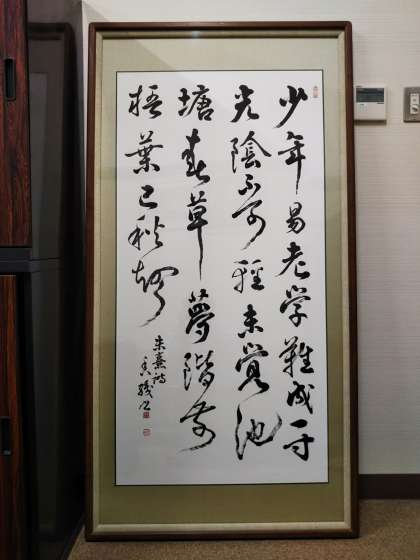 少年易老学難成一寸
光陰不可軽未覚池
塘春草夢階前
梧葉已秋聲
朱熹詩